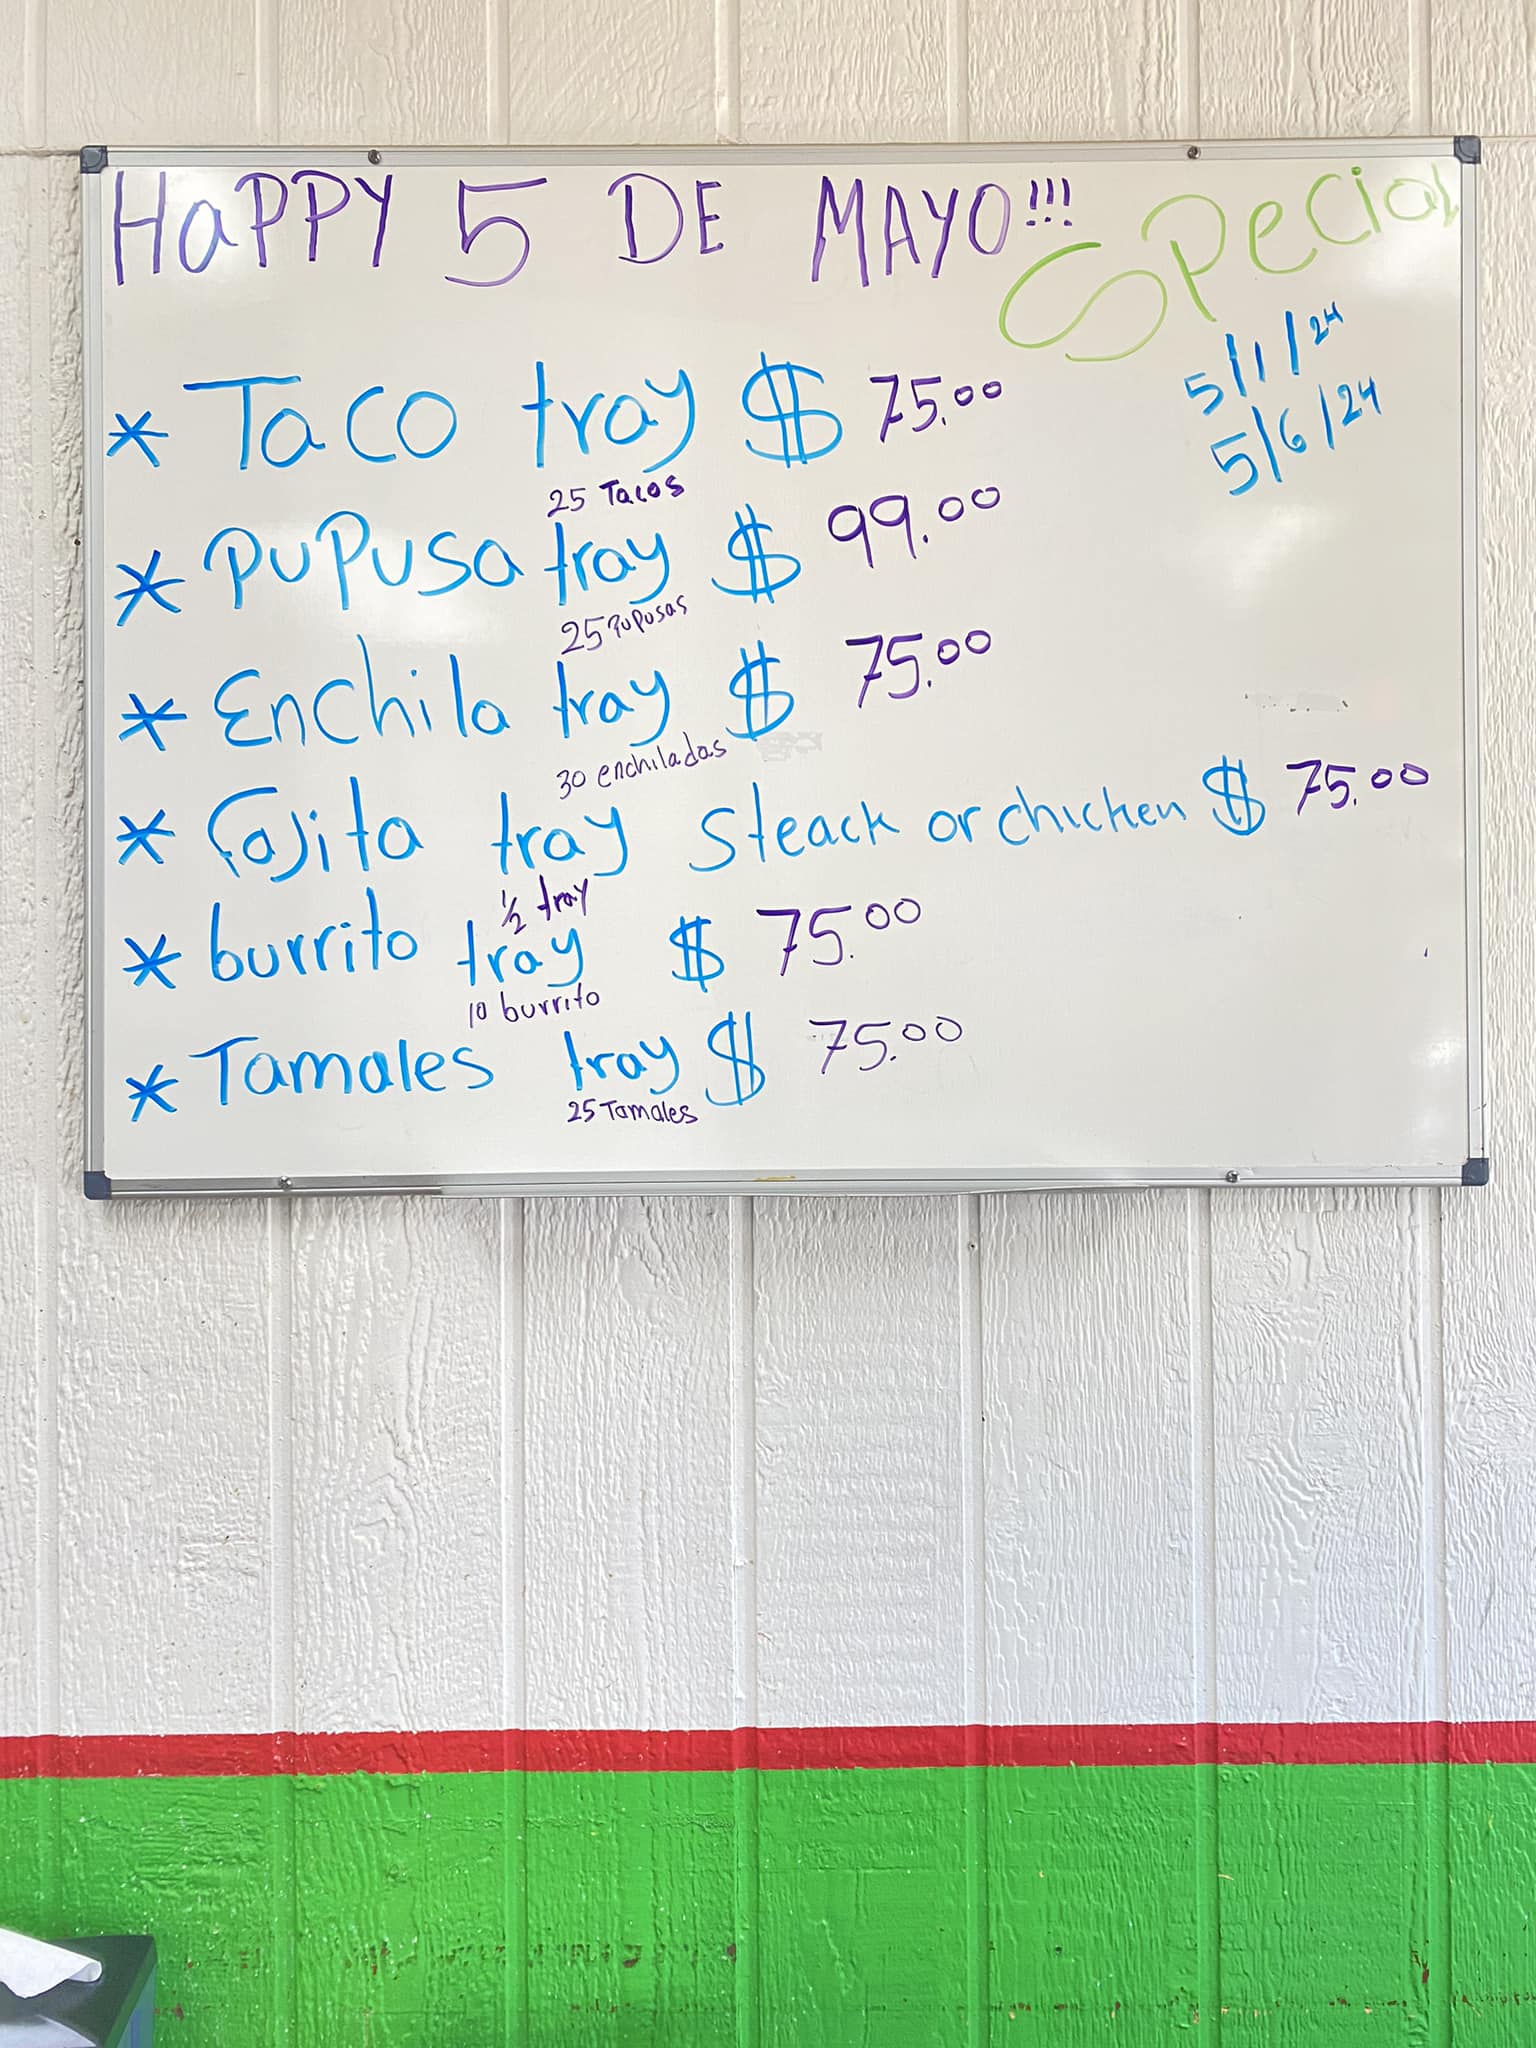 HaPPY 5 DE MAYO!!! SPecial
5/1/24
5/6/24
* Taco tray $ 75.00
25 Tacos
* PUPUSa tray $ 99.00
25 Pupusas
* Enchila tray $ 75.00
30 enchiladas
* Fajita tray Steack or chicken $ 75.00
1/2 tray
* burrito tray $ 75.00
10 burrito
* Tamales tray $ 75.00
25 Tamales